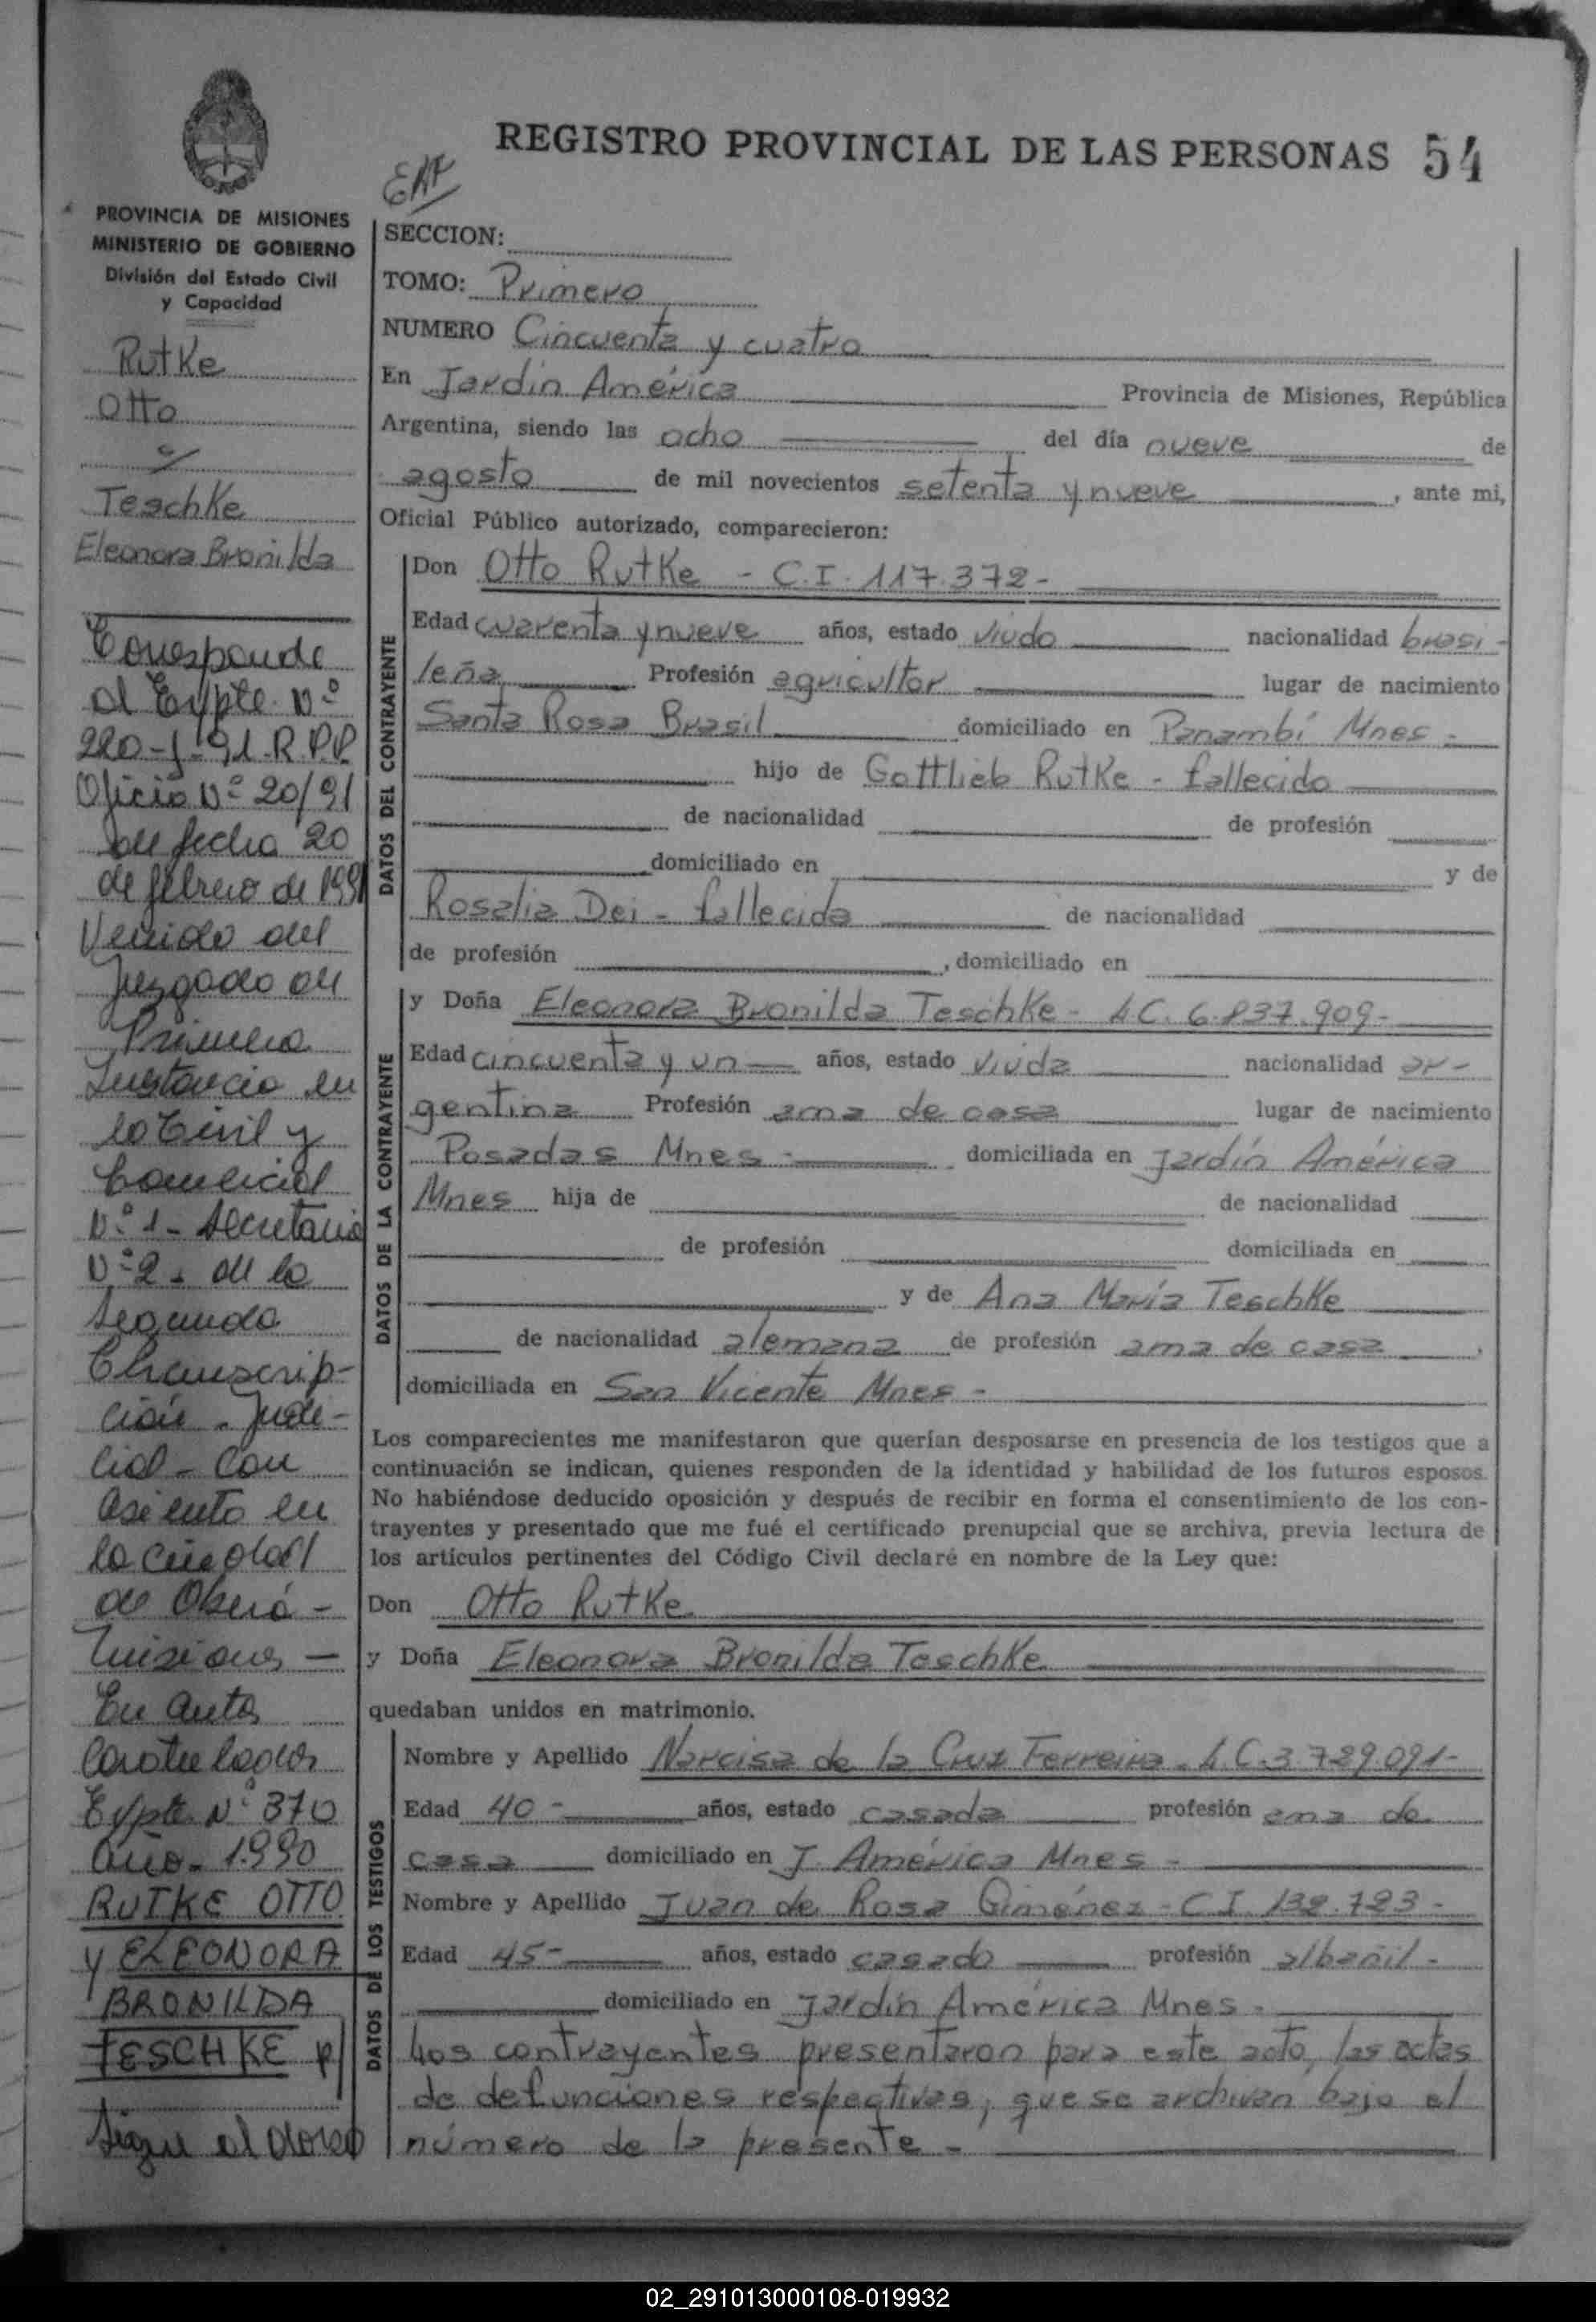 REGISTRO PROVINCIAL DE LAS PERSONAS 54
PROVINCIA DE MISIONES
MINISTERIO DE GOBIERNO
División del Estado Civil
y Capacidad
Rutke
Otto
c/
Teschke
Eleonora Bronilda
Corresponde
al Expte. Nº
220-J-91-R.P.P.
Oficio Nº 20/91
de fecha 20
de febrero de 1991
Venido del
Juzgado de
Primera
Instancia en
lo Civil y
Comercial
Nº 1 - Secretaria
Nº 2 - de la
Segunda
Circunscrip-
ción - Judi-
cial - Con
asiento en
la ciudad
de Oberá -
Misiones —
En autos
Caratulados
Expte Nº 370
año - 1990
RUTKE OTTO
y ELEONORA
BRONILDA
TESCHKE p/
Sigue al dorso
SECCION:
TOMO: Primero
NUMERO Cincuenta y cuatro
En Jardín América Provincia de Misiones, República
Argentina, siendo las ocho del día nueve de
agosto de mil novecientos setenta y nueve, ante mi,
Oficial Público autorizado, comparecieron:
DATOS DEL CONTRAYENTE
Don Otto Rutke - C.I. 117.372-
Edad cuarenta y nueve años, estado viudo nacionalidad brasi-
leña Profesión agricultor lugar de nacimiento
Santa Rosa Brasil domiciliado en Panambí Mnes -
hijo de Gottlieb Rutke - fallecido
de nacionalidad de profesión
domiciliado en y de
Rosalia Dei - fallecida de nacionalidad
de profesión , domiciliado en
DATOS DE LA CONTRAYENTE
y Doña Eleonora Bronilda Teschke - L.C. 6.837.909-
Edad cincuenta y un años, estado viuda nacionalidad ar-
gentina Profesión ama de casa lugar de nacimiento
Posadas Mnes - domiciliada en Jardín América
Mnes hija de de nacionalidad
de profesión domiciliada en
y de Ana María Teschke
de nacionalidad alemana de profesión ama de casa,
domiciliada en San Vicente Mnes -
Los comparecientes me manifestaron que querían desposarse en presencia de los testigos que a
continuación se indican, quienes responden de la identidad y habilidad de los futuros esposos.
No habiéndose deducido oposición y después de recibir en forma el consentimiento de los con-
trayentes y presentado que me fué el certificado prenupcial que se archiva, previa lectura de
los artículos pertinentes del Código Civil declaré en nombre de la Ley que:
Don Otto Rutke
y Doña Eleonora Bronilda Teschke
quedaban unidos en matrimonio.
DATOS DE LOS TESTIGOS
Nombre y Apellido Narcisa de la Cruz Ferreira - L.C. 3.729.091-
Edad 40 - años, estado casada profesión ama de
casa domiciliado en J. América Mnes -
Nombre y Apellido Juan de Rosa Giménez - C.I. 132.723 -
Edad 45 - años, estado casado profesión albañil -
domiciliado en Jardín América Mnes -
Los contrayentes presentaron para este acto, las actas
de defunciones respectivas, que se archivan bajo el
número de la presente -
02_291013000108-019932